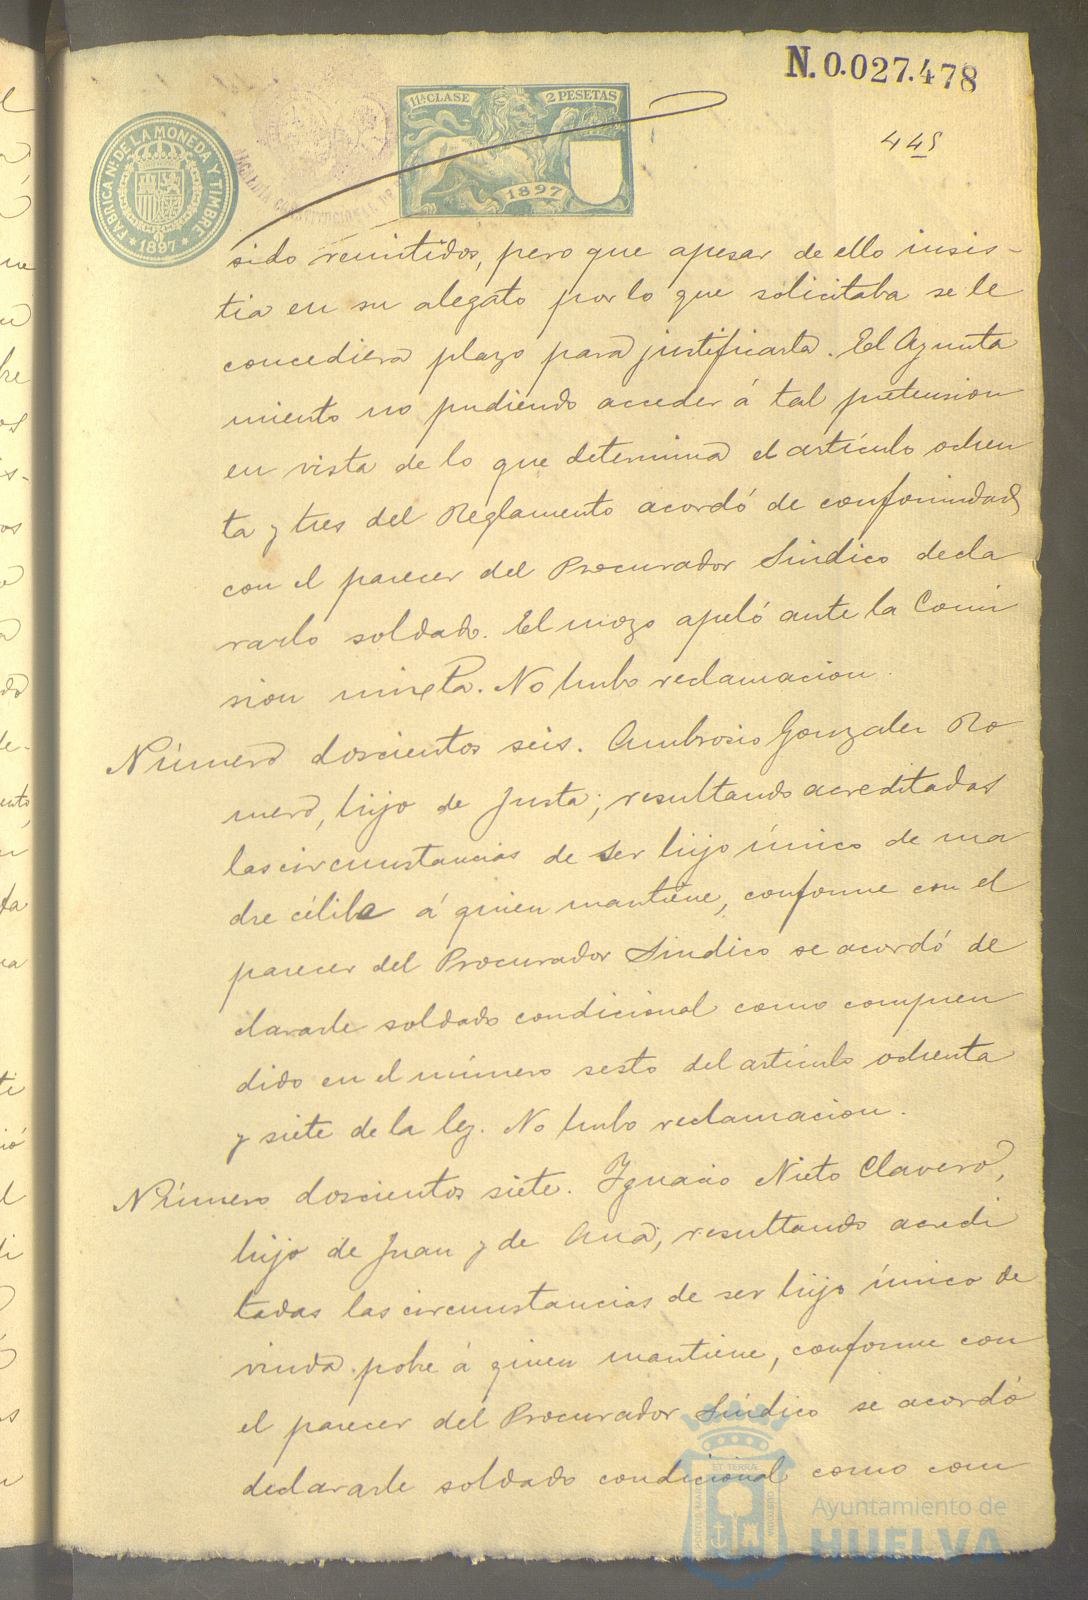 N. 0.027.478
445
11ª CLASE 2 PESETAS
1897
FABRICA Nl. DE LA MONEDA Y TIMBRE
* 1897 *
sido remitidos, pero que apesar de ello insis-
tia en su alegato por lo que solicitaba se le
concediera plazo para justificarla. El Ayunta
miento no pudiendo acceder á tal pretension
en vista de lo que determina el artículo ochen
ta y tres del Reglamento acordó de conformidad
con el parecer del Procurador Sindico decla
rarlo soldado. El mozo apeló ante la Comi
sion mixta. No hubo reclamacion.
Número doscientos seis. Ambrosio Gonzalez Ro
mero, hijo de Justa; resultando acreditadas
las circunstancias de ser hijo único de ma
dre célibe á quien mantiene, conforme con el
parecer del Procurador Sindico se acordó de
clararle soldado condicional como compren
dido en el número sesto del artículo ochenta
y siete de la ley. No hubo reclamacion.
Número doscientos siete. Ygnacio Nieto Clavero,
hijo de Juan y de Ana, resultando acredi
tadas las circunstancias de ser hijo único de
viuda pobre á quien mantiene, conforme con
el parecer del Procurador Síndico se acordó
declararle soldado condicional como com
Ayuntamiento de
HUELVA